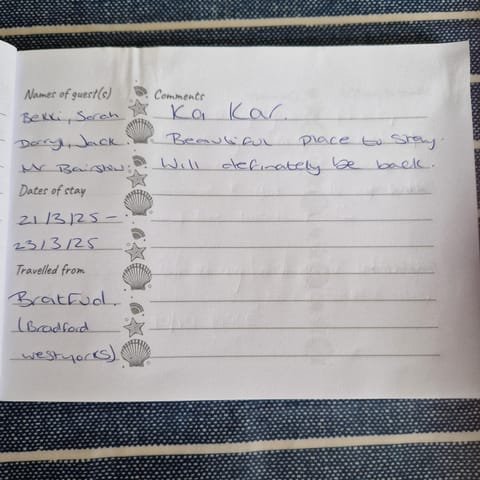 Names of guest(s)
Bekki, Sarah
Darryl, Jack.
Mr Bairstow.
Dates of stay
21/3/25 -
23/3/25
Travelled from
Bratfud.
(Bradford
westyorks)
Comments
Ka Kar.
Beautiful place to stay.
Will definately be back.